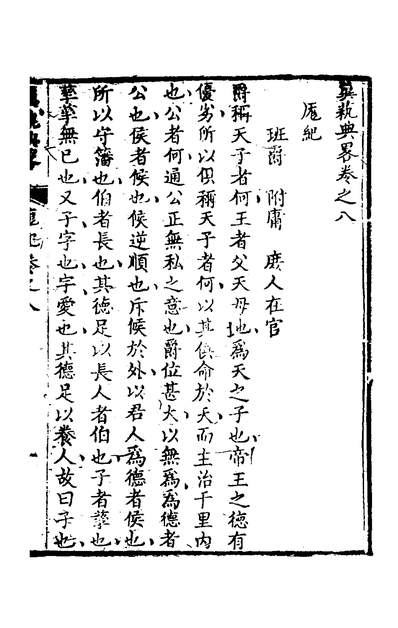 執典畧卷之八
厖紀
班爵　附庸　庶人在官
爵稱天子者何王者父天母地為天之子也帝王之德有
優劣所以俱稱天子者何以其俱命於天而主治千里內
也公者何通公正無私之意也爵位甚大以無為為德者
公也侯者候也候逆順也斥候於外以君人為德者侯也
所以守籓也伯者長也其德足以長人者伯也子者孳也
孳孳無已也又子字也字愛也其德足以養人故曰子也
厖紀卷之八
一